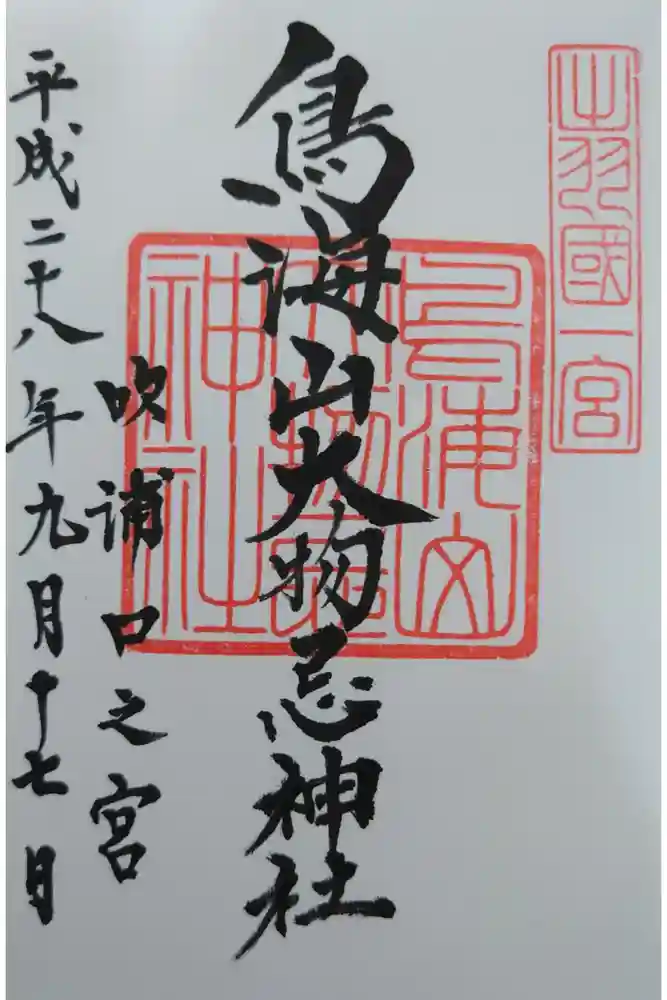 出羽國一宮
鳥海山
大物忌
神社
鳥海山大物忌神社
吹浦口之宮
平成二十八年九月十七日